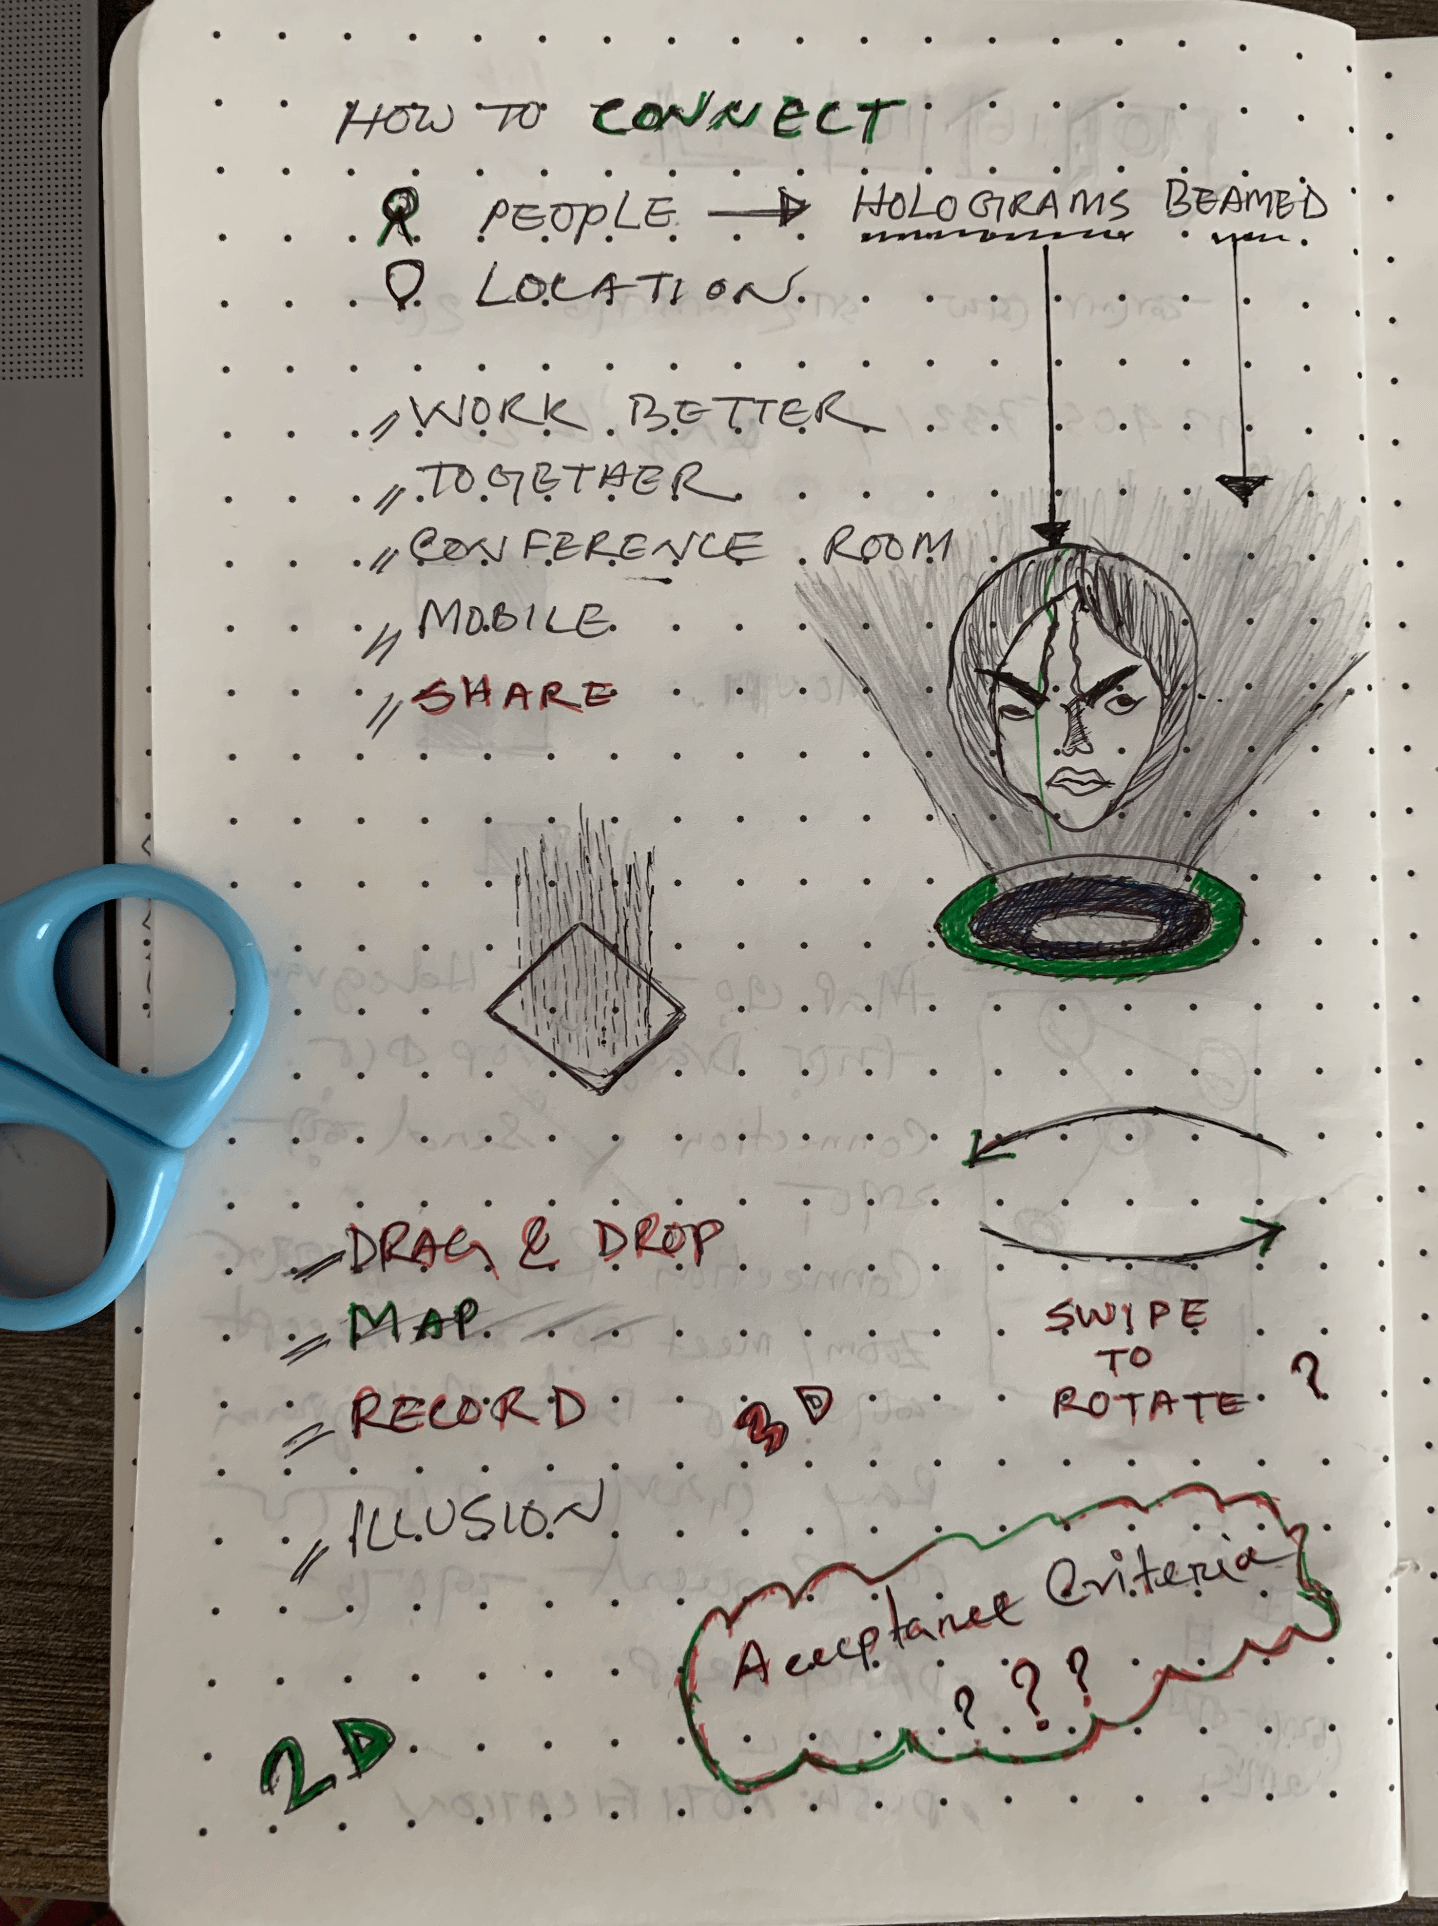 HOW TO CONNECT
PEOPLE → HOLOGRAMS BEAMED
LOCATION
// WORK BETTER
// TOGETHER
// CONFERENCE ROOM
// MOBILE
// SHARE
// DRAG & DROP
// MAP
// RECORD
// ILLUSION
3D
SWIPE
TO
ROTATE ?
Acceptance Criteria
? ? ?
2D